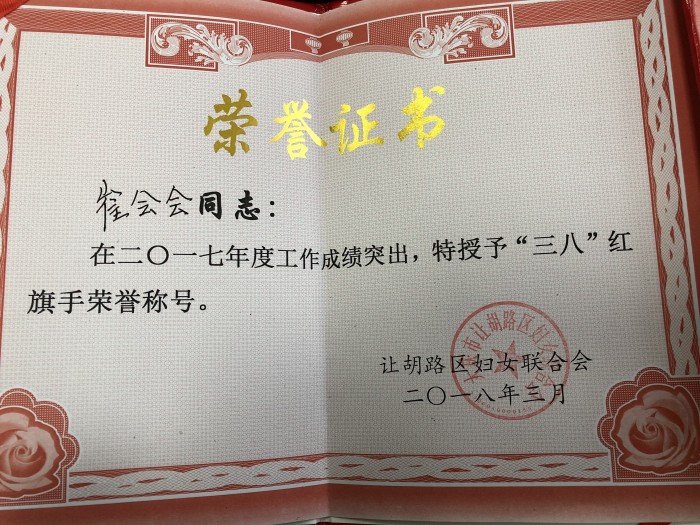 荣誉证书
崔会会同志：
在二〇一七年度工作成绩突出，特授予“三八”红
旗手荣誉称号。
让胡路区妇女联合会
二〇一八年三月